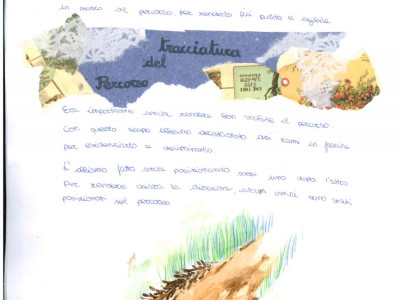 in mezzo al percorso per renderlo più pulito e agibile
tracciatura
del
Percorso
Era importante anche rendere ben visibile il percorso.
Con questo scopo abbiamo dei rami in
per evidenziarlo e
L'abbiamo fatto anche posizionando sassi uno dopo l'altro
per rendere chiara la direzione, alcuni omini sono stati
posizionati nel percorso